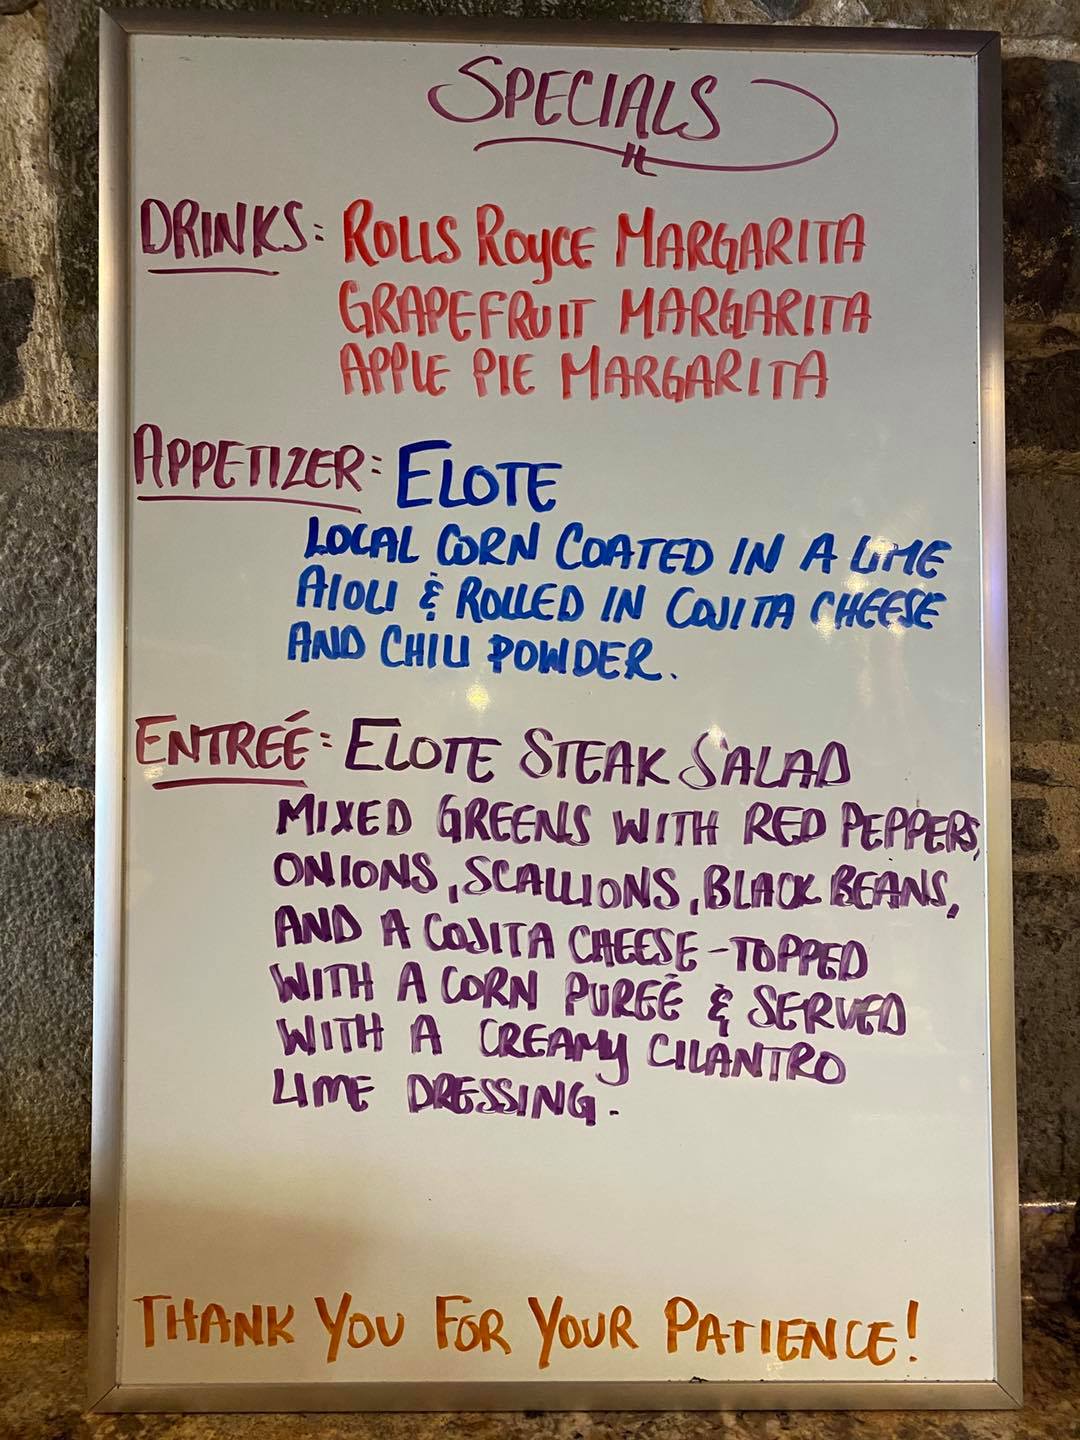 SPECIALS
DRINKS: ROLLS ROYCE MARGARITA
GRAPEFRUIT MARGARITA
APPLE PIE MARGARITA
APPETIZER: ELOTE
LOCAL CORN COATED IN A LIME
AIOLI & ROLLED IN COJITA CHEESE
AND CHILI POWDER.
ENTREÉ: ELOTE STEAK SALAD
MIXED GREENS WITH RED PEPPERS,
ONIONS, SCALLIONS, BLACK BEANS,
AND A COJITA CHEESE - TOPPED
WITH A CORN PUREÉ & SERVED
WITH A CREAMY CILANTRO
LIME DRESSING.
THANK YOU FOR YOUR PATIENCE!